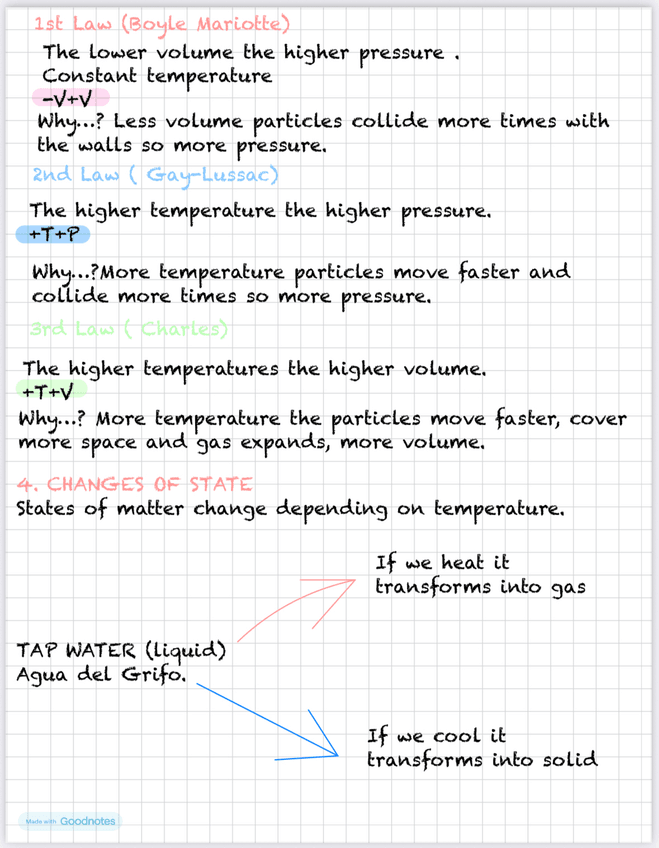 1st Law (Boyle Mariotte)
The lower volume the higher pressure .
Constant temperature
-V+V
Why...? Less volume particles collide more times with
the walls so more pressure.
2nd Law ( Gay-Lussac)
The higher temperature the higher pressure.
+T+P
Why...?More temperature particles move faster and
collide more times so more pressure.
3rd Law ( Charles)
The higher temperatures the higher volume.
+T+V
Why...? More temperature the particles move faster, cover
more space and gas expands, more volume.
4. CHANGES OF STATE
States of matter change depending on temperature.
If we heat it
transforms into gas
TAP WATER (liquid)
Agua del Grifo.
If we cool it
transforms into solid
Made with Goodnotes